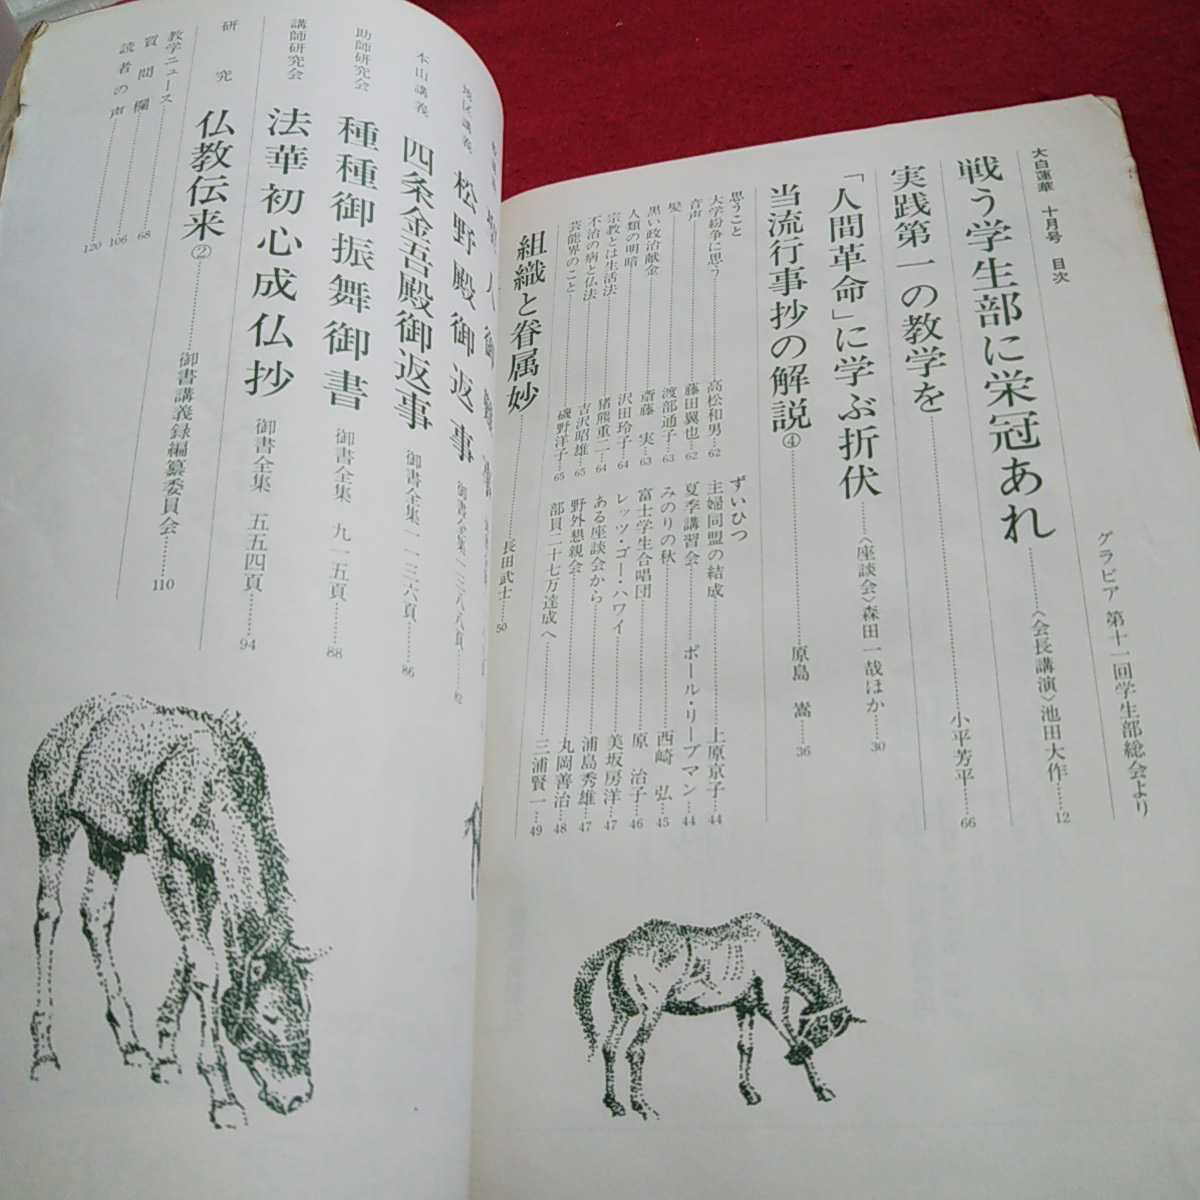 大白蓮華 十月号 目次
グラビア 第十一回学生部総会より
戦う学生部に栄冠あれ……〈会長講演〉池田大作……12
実践第一の教学を……小平芳平……66
「人間革命」に学ぶ折伏……〈座談会〉森田一哉ほか……30
当流行事抄の解説④……原島 嵩……36
思うこと
大学紛争に思う……高松和男…62
音声……藤田翼也…62
髪……渡部通子…63
黒い政治献金……斎藤 実…63
人類の明暗……沢田玲子…64
宗教とは生活法……猪熊重二…64
不治の病と仏法……吉沢昭雄…65
芸能界のこと……磯野洋子…65
ずいひつ
主婦同盟の結成……上原京子…44
夏季講習会……ポール・リープマン…44
みのりの秋……西崎 弘…45
富士学生合唱団……原 治子…46
レッツ・ゴー・ハワイ……美坂房洋…47
ある座談会から……浦島秀雄…47
野外懇親会……丸岡善治…48
部員二十七万達成へ……三浦賢一…49
組織と眷属妙……長田武士……50
松野殿御返事 御書全集一三八八頁……82
本山講義 四条金吾殿御返事 御書全集一一三六頁……86
助師研究会 種種御振舞御書 御書全集 九一五頁……88
講師研究会 法華初心成仏抄 御書全集 五五四頁……94
研究 仏教伝来②……御書講義録編纂委員会……110
教学ニュース……68
質問欄……106
読者の声……120